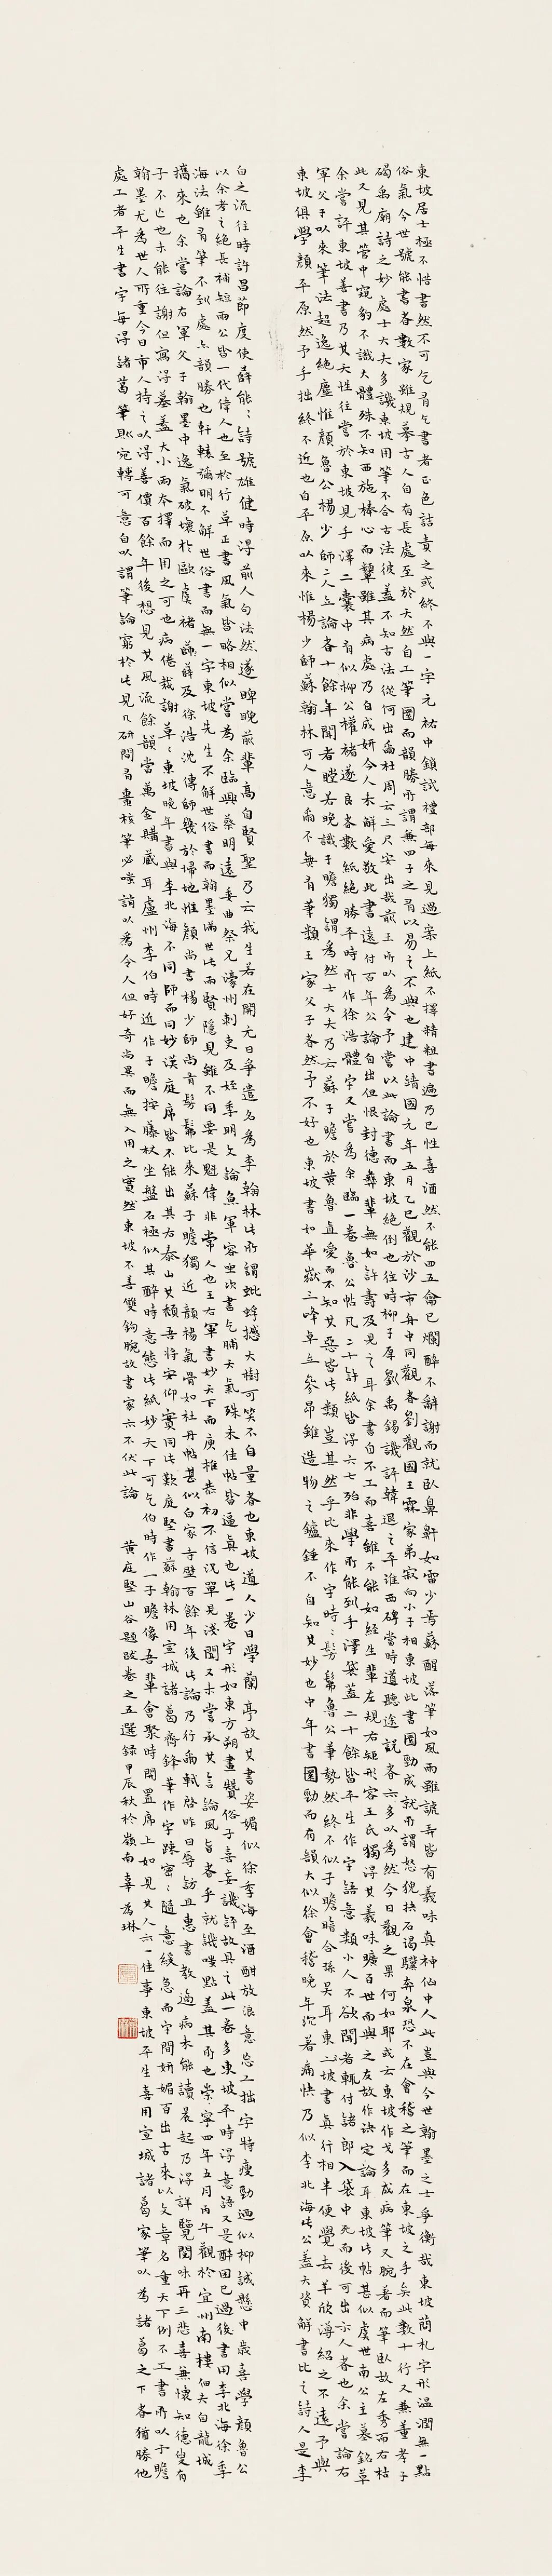 東坡居士極不惜書然不可乞有乞書者正色詰責之或終不與一字元祐中鎖試禮部每來見過案上紙不擇精粗書遍乃已性喜酒然不能四五龠已爛醉不辭謝而就臥鼻鼾如雷少焉蘇醒落筆如風雨雖謔弄皆有義味真神仙中人此豈與今世翰墨之士爭衡哉東坡簡札字形溫潤無一點
俗氣今世號能書者數家雖規摹古人自有長處至於天然自工筆圓而韻勝所謂兼四子之有以易之不與也建中靖國元年五月乙巳觀於沙市舟中同觀者劉觀國王霖家弟叔向小子相東坡此書圓勁成就所謂怒猊抉石渴驥奔泉恐不在會稽之筆而在東坡之手矣此數十行又兼董孝子
碣禹廟詩之妙處士大夫多譏東坡用筆不合古法彼蓋不知古法從何出爾杜周云三尺安出哉前王所以為令予嘗以此論書而東坡絕倒也往時柳子厚劉禹錫譏評韓退之平淮西碑當時道聽途說者亦多以為然今日觀之果何如耶或云東坡作戈多成病筆又腕著而筆臥故左秀而右枯
此又見其管中窺豹不識大體殊不知西施捧心而顰雖其病處乃自成妍今人未解愛敬此書遠付百年公論自出但恨封德彝輩無如許壽及見之耳余書自不工而喜雖不能如經生輩左規右矩形容王氏獨得其義味曠百世而與之友故作決定論耳東坡此帖甚似虞世南公主墓銘草
余嘗評東坡善書乃其天性往嘗於東坡見手澤二囊中有似柳公權褚遂良者數紙絕勝平時所作徐浩體字又嘗為余臨一卷魯公帖凡二十許紙皆得六七殆非學所能到手澤袋蓋二十餘皆平生作字語意類小人不欲聞者輒付諸郎入袋中死而後可出示人者也余嘗論右
軍父子以來筆法超逸絕塵惟顏魯公楊少師二人立論者十餘年聞者瞠若晚識子瞻獨謂為然士大夫乃云蘇子瞻於黃魯直愛而不知其惡皆此類豈其然乎比來作字時時髣髴魯公筆勢然終不似子瞻暗合孫吳耳東坡書真行相半便覺去羊欣薄紹之不遠予與
東坡俱學顏平原然予手拙終不近也自平原以來惟楊少師蘇翰林可人意爾不無有筆類王家父子者然予不好也東坡書如華嶽三峰卓立參昴雖造物之鑪錘不自知其妙也中年書圓勁而有韻大似徐會稽晚年沉著痛快乃似李北海此公蓋天資解書比之詩人是李
白之流往時許昌節度使薛能能詩號雄健時得前人句法然遂睥睨前輩高自賢聖乃云我生若在開元日爭遣名為李翰林此所謂蚍蜉撼大樹可笑不自量者也東坡道人少日學蘭亭故其書姿媚似徐季海至酒酣放浪意忘工拙字特瘦勁迺似柳誠懸中歲喜學顏魯公
以余考之絕長補短兩公皆一代偉人也至於行草正書風氣皆略相似嘗為余臨與蔡明遠委曲祭兄濠州刺史及姪季明文論魚軍容坐次書乞脯天氣殊未佳帖皆逼真也此一卷字形如東方朔畫贊俗子喜妄譏評故具之此一卷多東坡平時得意語又是醉困已過後書用李北海徐季
海法雖有筆不到處亦韻勝也軒轅彌明不解世俗書而無一字東坡先生不解世俗書而翰墨滿世此兩賢隱見雖不同要是魁偉非常人也王右軍書妙天下而庾稚恭初不信況單見淺聞又未嘗承其言論風旨者乎就譏嗤點蓋其所也崇寧四年五月丙午觀於宜州南樓佃夫自龍城
攜來也余嘗論右軍父子翰墨中逸氣破壞於歐虞褚薛及徐浩沈傳師幾於掃地惟顏尚書楊少師尚有髣髴比來蘇子瞻獨近顏楊氣骨如牡丹帖甚似白家寺壁百餘年後此論乃行爾軾啟昨日辱訪且惠書教適病未能讀晨起乃得詳覽閱味再三悲喜無懷知德叟有
子不亡也未能往謝但寫得墓蓋大小兩本擇而用之可也病倦裁謝草草東坡晚年書與李北海不同師而同妙漢庭席皆不能出其右泰山其頹吾將安仰實同此歎庭堅書蘇翰林用宣城諸葛齊鋒筆作字疎疎密密隨意緩急而字間妍媚百出古來以文章名重天下例不工書所以子瞻
翰墨尤為世人所重今日市人持之以得善價百餘年後想見其風流餘韻當萬金購藏耳盧州李伯時近作子瞻按藤杖坐盤石極似其醉時意態此紙妙天下可乞伯時作一子瞻像吾輩會聚時開置席上如見其人亦一佳事東坡平生喜用宣城諸葛家筆以為諸葛之下者猶勝他
處工者平生書字每得諸葛筆則宛轉可意自以謂筆論窮於此見几研間有棗核筆必嗤誚以為今人但好奇尚異而無入用之實然東坡不善雙鉤懸腕故書家亦不伏此論 黃庭堅山谷題跋卷之五選錄甲辰秋於嶺南辜為琳